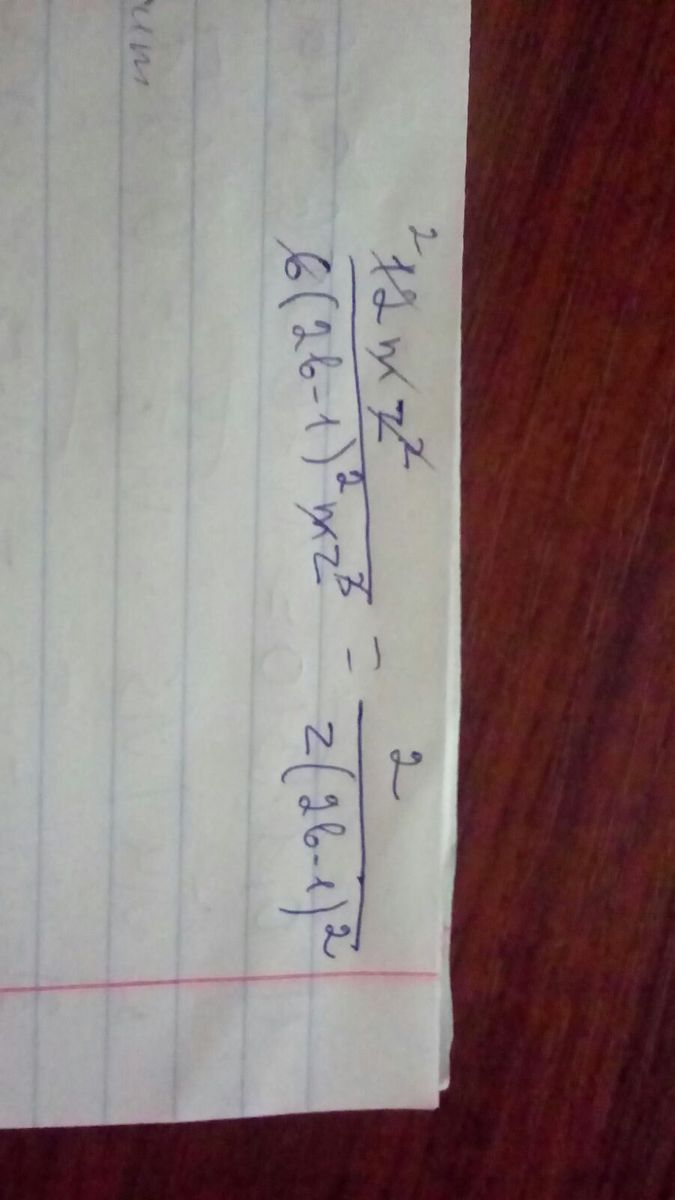 2
12 m z²
6(2b-1)² m z³ = 2
z(2b-1)²